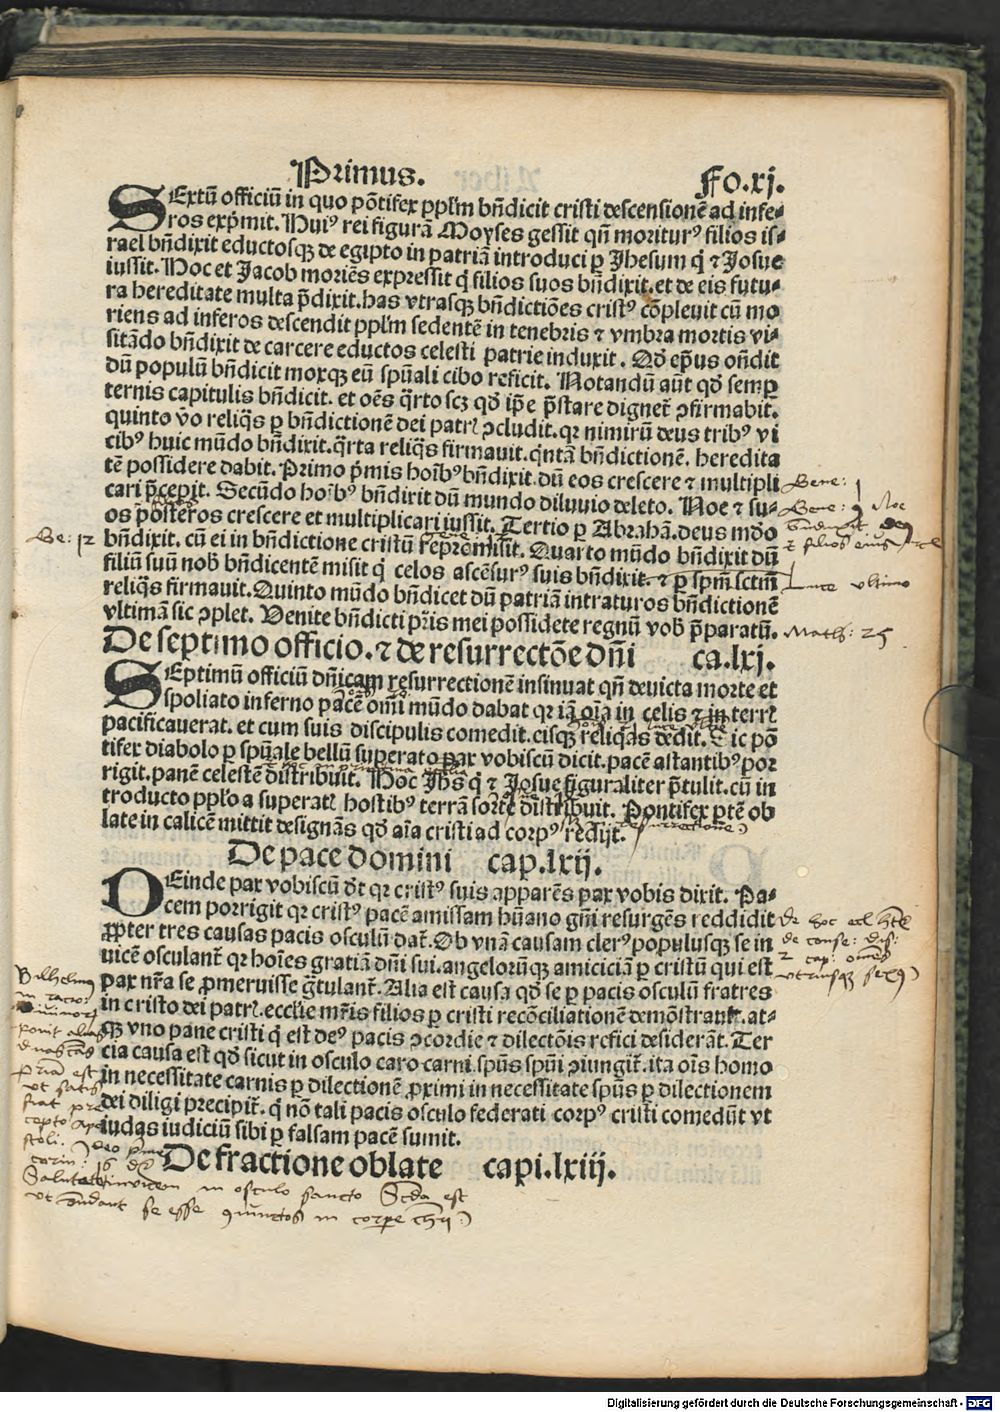 Primus.
Fo.xj.
SExtū officiū in quo pōtifex pplꝫm bñdicit cristi descensionē ad infe⸗
ros exp̄mit. Huiꝰ rei figurā Moyses gessit qñ moriturꝰ filios is⸗
rael bñdixit eductosqꝫ de egipto in patriā introduci ꝑ Jhesum q̇ ⁊ Josue
iussit. Hoc et Jacob moriēs expressit q̇ filios suos bñdixit. et de eis futu⸗
ra hereditate multa p̄dixit. has vtrasqꝫ bñdictiōes cristꝰ cōpleuit cū mo
riens ad inferos descendit pplꝫm sedentē in tenebris ⁊ vmbra mortis vi⸗
sitādo bñdixit de carcere eductos celesti patrie induxit. Qd̄ ep̄us oñdit
dū populū bñdicit moxqꝫ eū spūali cibo reficit. Notandū aūt qd̄ semꝑ
ternis capitulis bñdicit. et oēs q̄rto scꝫ qd̄ ip̄e p̄stare dignet̄ ↄfirmabit.
quinto v̄o reliq̄s ꝑ bñdictionē dei patrꝭ ↄcludit. qꝛ nimirū deus tribꝰ vi
cibꝰ huic mūdo bñdixit. q̄rta reliq̄s firmauit. q̄ntā bñdictionē. heredita
tē possidere dabit. Primo p̄mis hoībꝰ bñdixit. dū eos crescere ⁊ multipli
cari p̄cepit. Secūdo hoībꝰ bñdixit dū mundo diluuio deleto. Noe ⁊ su⸗
os posteros crescere et multiplicari iussit. Tertio ꝑ Abrahā. deus mūdo
bñdixit. cū ei in bñdictione cristū repromisit. Quarto mūdo bñdixit dū
filiū suū nob̄ bñdicentē misit q̇ celos ascēsurꝰ suis bñdixit. ⁊ ꝑ spm̄ sctm̄
reliq̄s firmauit. Quinto mūdo bñdicet dū patriā intraturos bñdictionē
vltimā sic ↄplet. Venite bñdicti pr̄is mei possidete regnū vob̄ p̄paratū.
De septimo officio. ⁊ de resurrectōe dñi ca.lxj.
SEptimū officiū dñicam resurrectionē insinuat qñ deuicta morte et
spoliato inferno pacē oīm mūdo dabat qꝛ iā oīa in celis ⁊ in terrꝭ
pacificauerat. et cum suis discipulis comedit. eisqꝫ reliqas dedit. Sic pō
tifex diabolo ꝑ spūale bellū superato pax vobiscū dicit. pacē astantibꝰ por
rigit. panē celestē distribuit. Hoc Jhs q̇ ⁊ Josue figuraliter p̄tulit. cū in
troducto pplo a superatꝭ hostibꝰ terrā sorte distribuit. Pontifex ꝑtē ob
late in calicē mittit designās qd̄ aīa cristi ad corpꝰ redijt.
De pace domini cap.lxij.
DEinde pax vobiscū dt̄ qꝛ cristꝰ suis apparēs pax vobis dixit. Pa⸗
cem porrigit qꝛ cristꝰ pacē amissam hūano gñi resurgēs reddidit
ꝓpter tres causas pacis osculū dat̄. Ob vnā causam clerꝰ populusqꝫ se in
uicē osculant̄ qꝛ hoīes gratiā dñi sui. angelorūqꝫ amiciciā ꝑ cristū qui est
pax nr̄a se ꝓmeruisse g̃tulant̄. Alia est causa qd̄ se ꝑ pacis osculū fratres
in cristo dei patrꝭ. ecclīe mr̄is filios ꝑ cristi recōciliationē demōstrant̄. at⸗
qꝫ vno pane cristi q̇ est deꝰ pacis ↄcordie ⁊ dilectōis refici desiderāt. Ter
cia causa est qd̄ sicut in osculo caro carni. spūs spūi ↄiungit̄. ita oīs homo
in necessitate carnis ꝑ dilectionē ꝓximi in necessitate spūs ꝑ dilectionem
dei diligi precipit̄. q̇ nō tali pacis osculo federati corpꝰ cristi comedūt vt
iudas iudiciū sibi ꝑ falsam pacē sumit.
De fractione oblate capi.lxiij.
Gene: 1
Gene: 9 Noe
Ge: 12
Luce vltimo
Math: 25
de conse: dis:
2 cap: omēs
vtriusqꝫ sexꝰ
ponit alias
vt satis
fiat pre
cepto apo
stoli:
corin: 16
Salutate inuicem in osculo sancto Scda est
vt ondant se esse in corpe
Digitalisierung gefördert durch die Deutsche Forschungsgemeinschaft - DFG